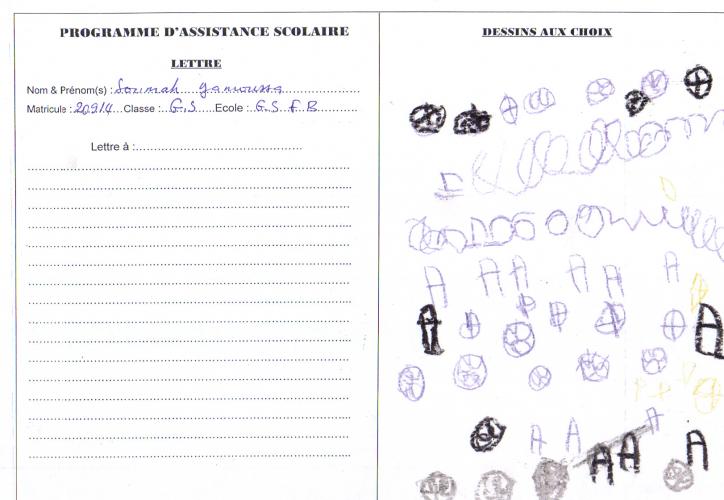 PROGRAMME D'ASSISTANCE SCOLAIRE
LETTRE
Nom & Prénom(s) : Soumah
Matricule : 20914 Classe : G.S Ecole : G.S.F.B
Lettre à :
DESSINS AUX CHOIX
A A A A A A
A A
A A A
A A A